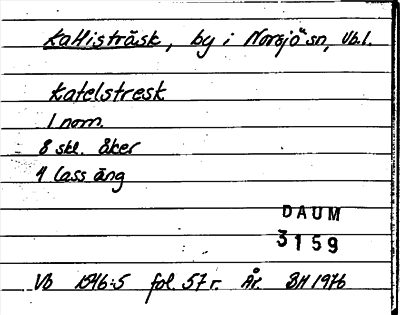 Kattisträsk, by i Norsjö sn, Vb.l.
Katelstresk
1 nom.
8 skl. åker
4 lass äng
DAUM
3159
Vb 1546:5 fol. 57 r. År. BH 1976